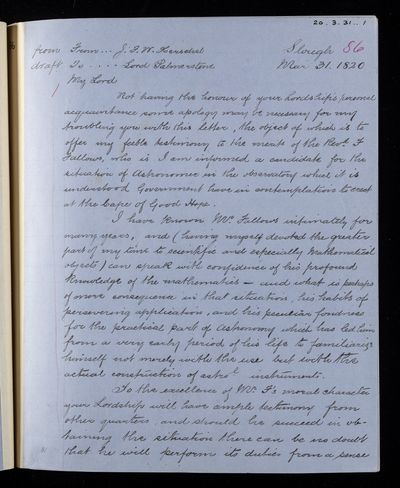 20.3.31..1
from From... J. F. W. Herschel Slough 56
draft To.... Lord Palmerston Mar 31. 1820
My Lord
Not having the honour of your Lordship's personal
acquaintance some apology may be necessary for my
troubling you with this letter, the object of which is to
offer my feeble testimony to the merits of the Revd. F
Fallows, who is, I am informed a candidate for the
situation of Astronomer in the Observatory which it is
understood Government have in contemplation to erect
at the Cape of Good Hope.
I have known Mr. Fallows intimately for
many years, and (having myself devoted the greater
part of my time to scientific and especially Mathematical
objects) can speak with confidence of his profound
knowledge of the mathematics — and what is perhaps
of more consequence in that situation, his habits of
persevering application, and his peculiar fondness
for the practical part of Astronomy which has led him
from a very early period of his life to familiarize
himself not merely with the use but with the
actual construction of astrol. instruments.
To the excellence of Mr. F's moral character
your Lordship will have ample testimony from
other quarters, and should he succeed in ob-
taining the situation there can be no doubt
that he will perform its duties from a sense